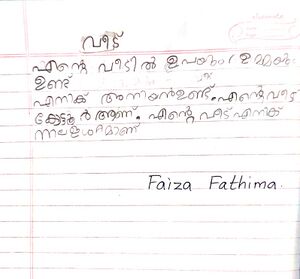 വീട്
എന്റെ വീട്ടിൽ ഉപ്പയും ഉമ്മയും
ഉണ്ട്
എനിക് അനിയൻ ഉണ്ട്. എന്റെ വീട്
ആണ്. എന്റെ വീട് എനിക്
Faiza Fathima.